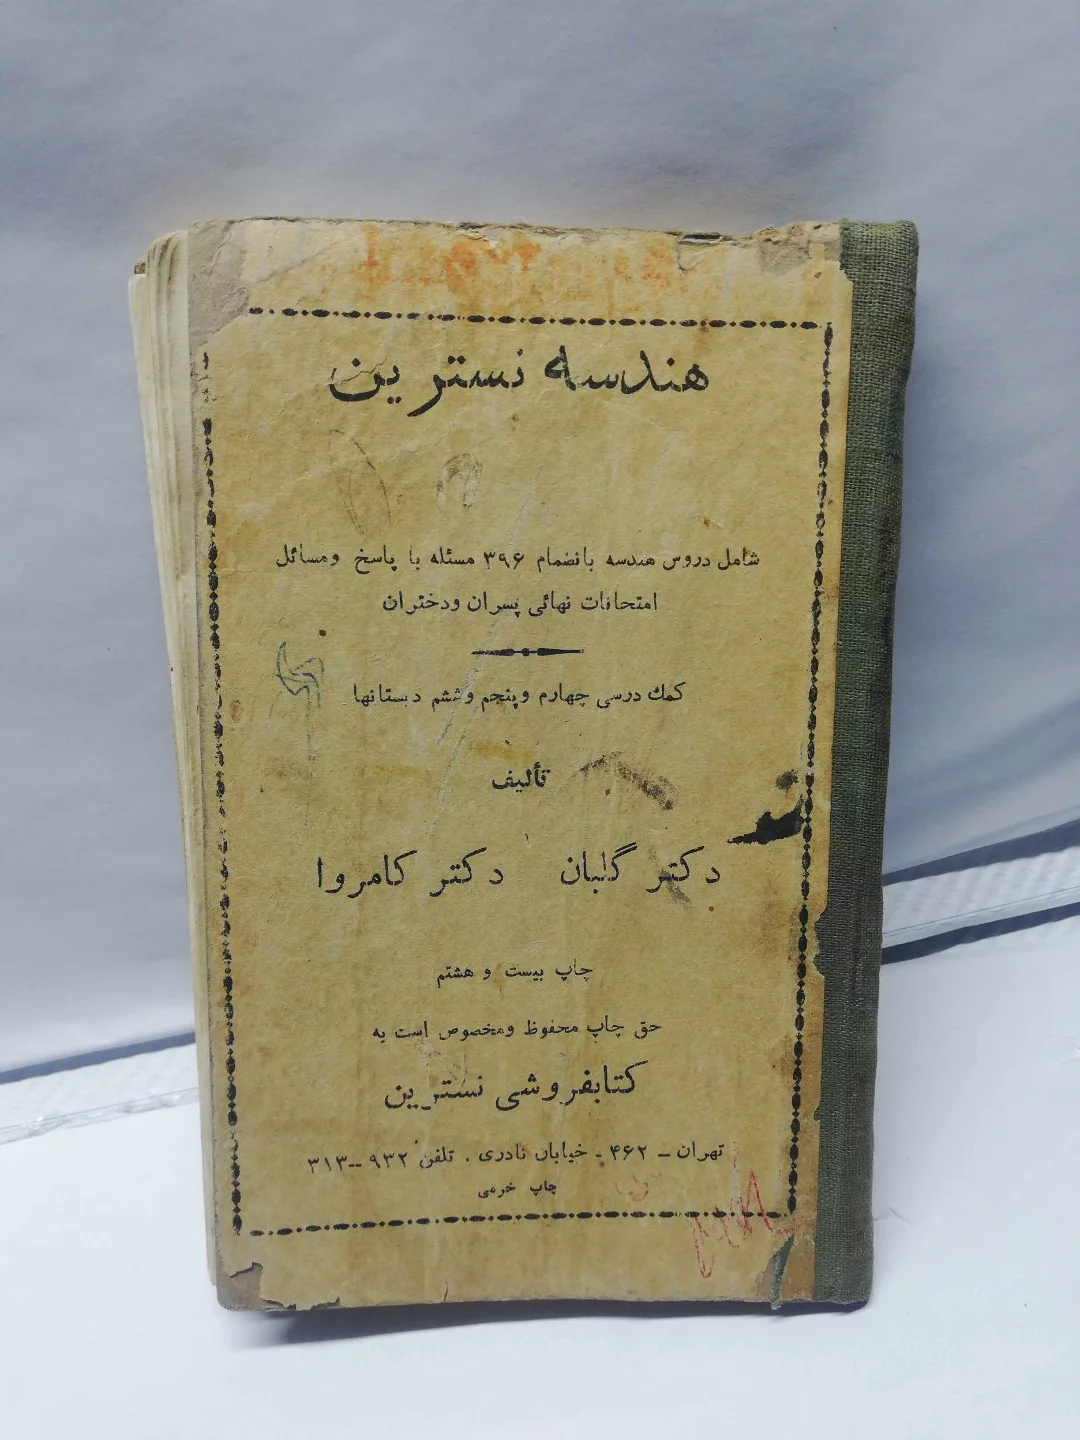 هندسه نسترین
شامل دروس هندسه بانضمام ۳۹۶ مسئله با پاسخ ومسائل
امتحانات نهائی پسران ودختران
کمك درسی چهارم وپنجم وششم دبستانها
تألیف
دکتر گلبان دکتر کامروا
چاپ بیست و هشتم
حق چاپ محفوظ ومخصوص است به
کتابفروشی نسترین
تهران ــ ۴۶۲ ـ خیابان نادری . تلفن ۹۳۲ــ۳۱۳
چاپ خرمی